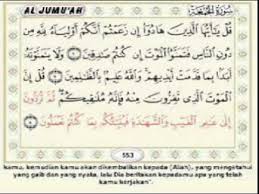 AL JUMU'AH
سورة الجمعة
قُلْ يَٰٓأَيُّهَا ٱلَّذِينَ هَادُوٓا۟ إِن زَعَمْتُمْ أَنَّكُمْ أَوْلِيَآءُ لِلَّهِ مِن
دُونِ ٱلنَّاسِ فَتَمَنَّوُا۟ ٱلْمَوْتَ إِن كُنتُمْ صَٰدِقِينَ ۝ وَلَا يَتَمَنَّوْنَهُۥٓ
أَبَدًۢا بِمَا قَدَّمَتْ أَيْدِيهِمْ وَٱللَّهُ عَلِيمٌۢ بِٱلظَّٰلِمِينَ ۝ قُلْ إِنَّ
ٱلْمَوْتَ ٱلَّذِى تَفِرُّونَ مِنْهُ فَإِنَّهُۥ مُلَٰقِيكُمْ ثُمَّ تُرَدُّونَ
إِلَىٰ عَٰلِمِ ٱلْغَيْبِ وَٱلشَّهَٰدَةِ فَيُنَبِّئُكُم بِمَا كُنتُمْ تَعْمَلُونَ ۝
553
kamu, kemudian kamu akan dikembalikan kepada (Allah), yang mengetahui
yang gaib dan yang nyata, lalu Dia beritakan kepadamu apa yang telah
kamu kerjakan".